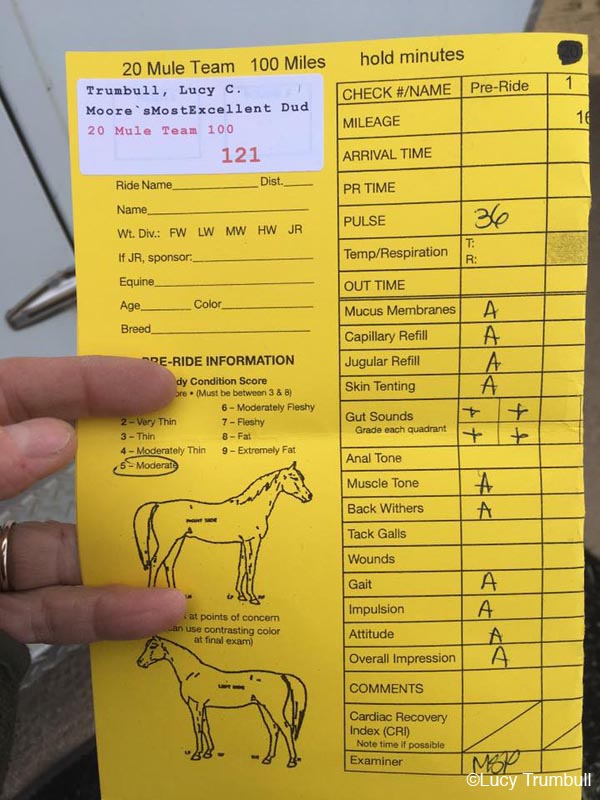 20 Mule Team 100 Miles hold minutes
Trumbull, Lucy C.
Moore`sMostExcellent Dud
20 Mule Team 100
121
Ride Name Dist.
Name
Wt. Div.: FW LW MW HW JR
If JR, sponsor:
Equine
Age Color
Breed
PRE-RIDE INFORMATION
Condition Score
• (Must be between 3 & 8)
6 – Moderately Fleshy
2 – Very Thin 7 – Fleshy
3 – Thin 8 – Fat
4 – Moderately Thin 9 – Extremely Fat
5 – Moderate
RIGHT SIDE
at points of concern
use contrasting color
at final exam)
LEFT SIDE
CHECK #/NAME Pre-Ride 1
MILEAGE 16
ARRIVAL TIME
PR TIME
PULSE 36
Temp/Respiration T:
R:
OUT TIME
Mucus Membranes A
Capillary Refill A
Jugular Refill A
Skin Tenting A
Gut Sounds + +
Grade each quadrant + +
Anal Tone
Muscle Tone A
Back Withers A
Tack Galls
Wounds
Gait A
Impulsion A
Attitude A
Overall Impression A
COMMENTS
Cardiac Recovery
Index (CRI)
Note time if possible
Examiner MSP
©Lucy Trumbull